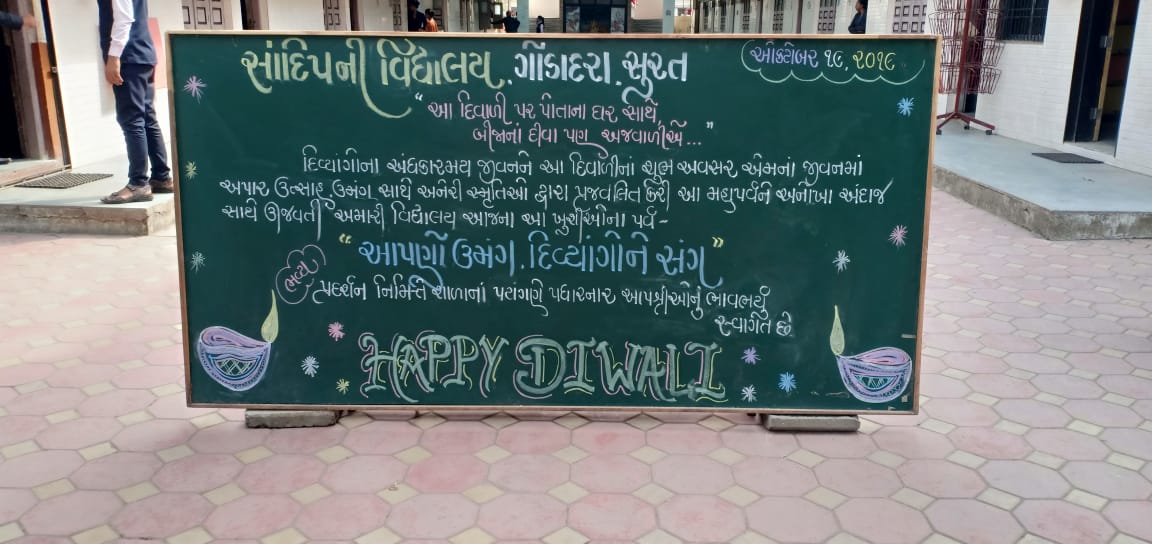 સાંદિપની વિદ્યાલય, ગોંડાદરા, સુરત
ઓક્ટોબર ૧૯, ૨૦૧૯
“આ દિવાળી પર પોતાના ઘર સાથે,
બીજાનાં દીવા પણ અજવાળીએ...”
દિવ્યાંગોના અંધકારમય જીવનને આ દિવાળીનાં શુભ અવસર એમનાં જીવનમાં
અપાર ઉત્સાહ, ઉમંગ સાથે અનેરી સ્મૃતિઓ દ્વારા પ્રજવલિત કરી આ મહાપર્વને અનોખા અંદાજ
સાથે ઊજવતી અમારી વિદ્યાલય આજના આ ખુશીઓના પર્વ -
“આપણો ઉમંગ, દિવ્યાંગોને સંગ”
ભવ્ય
પ્રદર્શન નિમિત્તે શાળાનાં પટાંગણે પધારનાર આપશ્રીઓનું ભાવભર્યું
સ્વાગત છે
HAPPY DIWALI